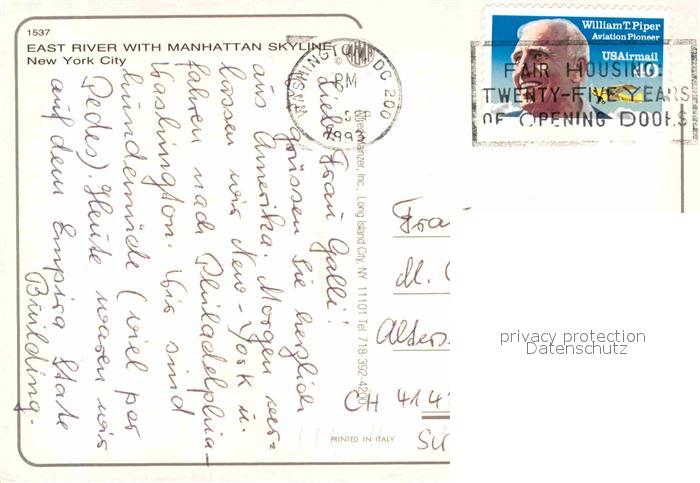 1537
EAST RIVER WITH MANHATTAN SKYLINE
New York City
WASHINGTON DC 200
PM
SEP
1993
William T. Piper
Aviation Pioneer
USAirmail
40
FAIR HOUSING:
TWENTY-FIVE YEARS
OF OPENING DOORS
Liebe Frau Galli!
grüssen Sie herzlich
aus Amerika. Morgen ver-
lassen wir New-York u.
fahren nach Philadelphia-
Washington. Wir sind
hundemüde (viel per
Pedes). Heute waren wir
auf dem Empire State
Building.
Alfred Mainzer, Inc., Long Island City, NY 11101 Tel 718-392-4200
M.
Alters
CH 4142
PRINTED IN ITALY
privacy protection
Datenschutz